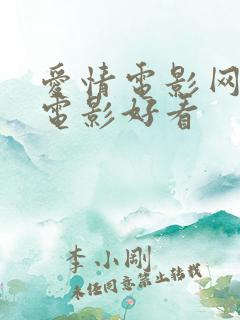 愛情電影网
電影好看
李小刚
未经同意禁止转载